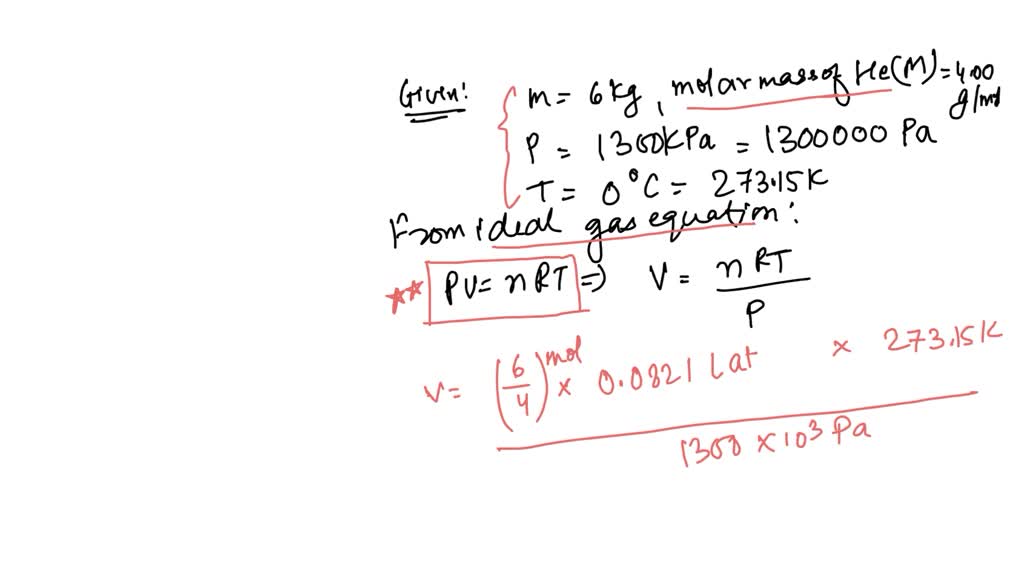 Given:
m = 6kg, molar mass of He(M) = 4.00 g/mol
P = 1300KPa = 1300000 Pa
T = 0°C = 273.15K
From ideal gas equation:
** PV = nRT => V = nRT / P
V = (6/4) mol × 0.0821 L at × 273.15K / 1300 × 10³ Pa